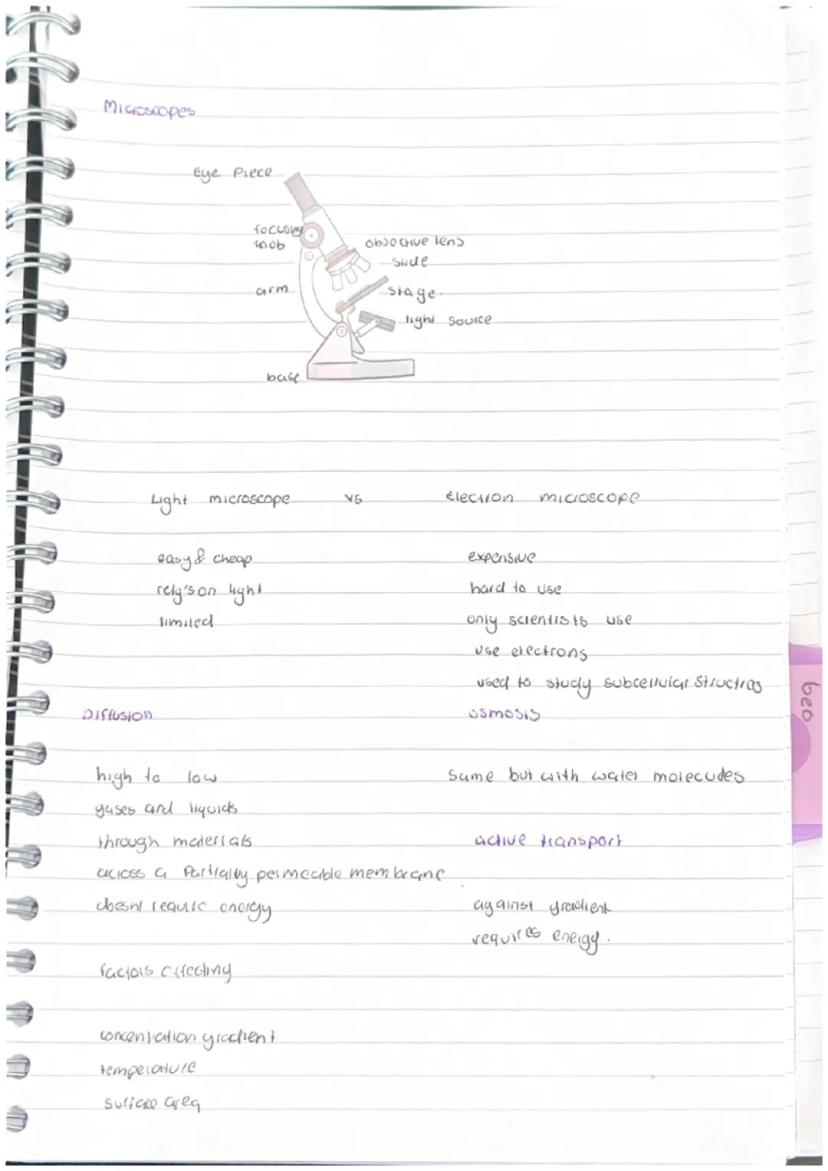 Microscopes
Eye Piece
focusing
knob
objective lens
slide
arm
stage
light source
base
Light microscope vs electron microscope
easy & cheap
rely's on light
limited
expensive
hard to use
only scientists use
use electrons
used to study subcellular structres
Diffusion
high to low
gases and liquids
through materials
across a partially permeable membrane
doesnt require energy
factors affecting
concentration gradient
temperature
surface area
osmosis
same but with water molecudes
active transport
against gradient
requires energy.
geo